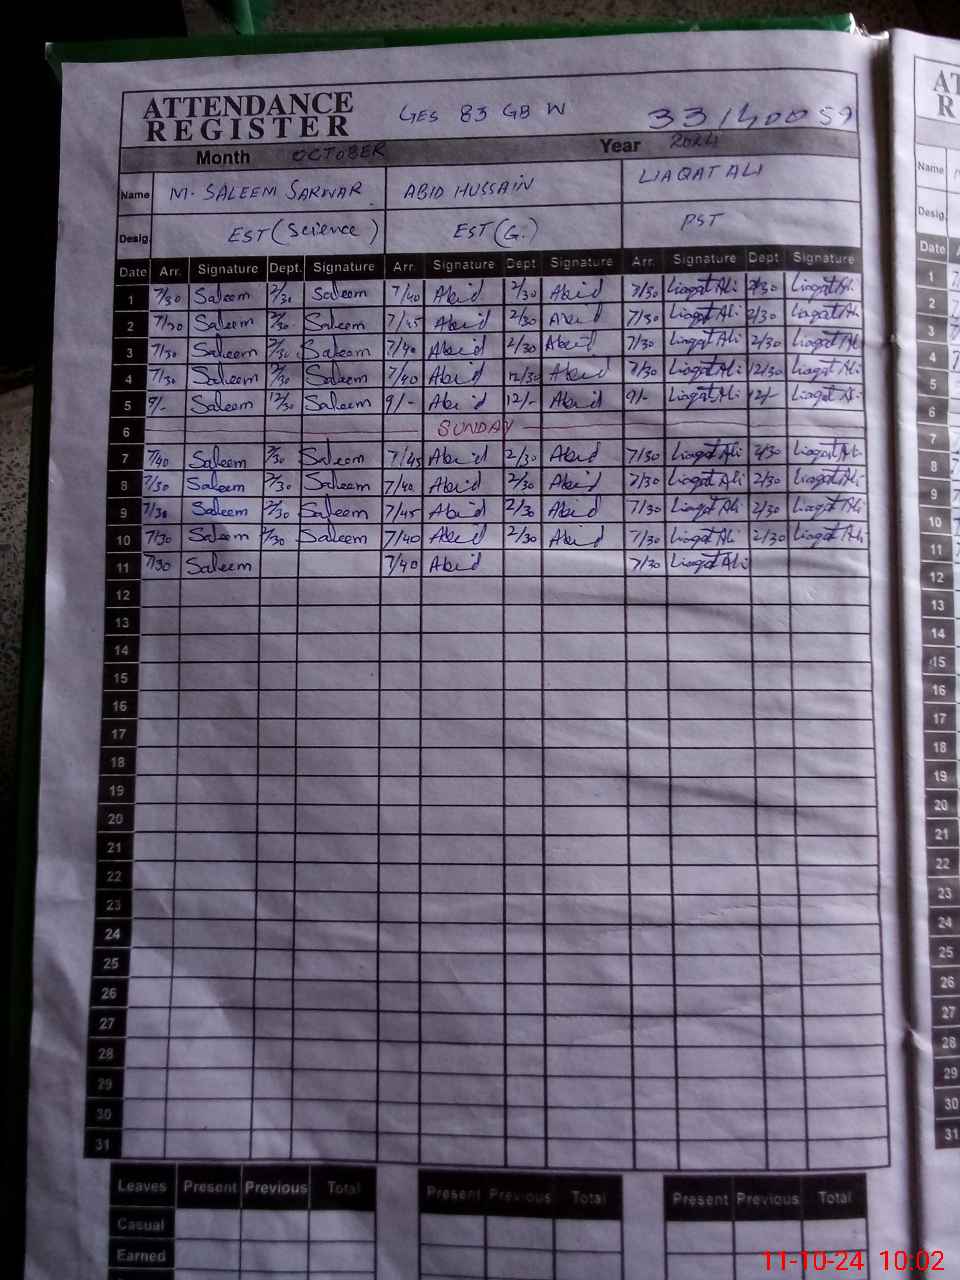 ATTENDANCE REGISTER GES 83 GB W 33140059
Month OCTOBER Year 2024
Name M. SALEEM SARWAR ABID HUSSAIN LIAQAT ALI
Desig. EST (Science) EST (G.) PST
Date Arr. Signature Dept. Signature Arr. Signature Dept Signature Arr. Signature Dept Signature
1 7/30 Saleem 2/30 Saleem 7/40 Abid 2/30 Abid 7/30 Liaqat Ali 2/30 Liaqat Ali
2 7/30 Saleem 2/30 Saleem 7/45 Abid 2/30 Abid 7/30 Liaqat Ali 2/30 Liaqat Ali
3 7/30 Saleem 2/30 Saleem 7/40 Abid 2/30 Abid 7/30 Liaqat Ali 2/30 Liaqat Ali
4 7/30 Saleem 2/30 Saleem 7/40 Abid 12/30 Abid 7/30 Liaqat Ali 12/30 Liaqat Ali
5 9/- Saleem 12/30 Saleem 9/- Abid 12/- Abid 9/- Liaqat Ali 12/- Liaqat Ali
6 SUNDAY
7 7/40 Saleem 2/30 Saleem 7/45 Abid 2/30 Abid 7/30 Liaqat Ali 2/30 Liaqat Ali
8 7/30 Saleem 2/30 Saleem 7/40 Abid 2/30 Abid 7/30 Liaqat Ali 2/30 Liaqat Ali
9 7/30 Saleem 2/30 Saleem 7/45 Abid 2/30 Abid 7/30 Liaqat Ali 2/30 Liaqat Ali
10 7/30 Saleem 2/30 Saleem 7/40 Abid 2/30 Abid 7/30 Liaqat Ali 2/30 Liaqat Ali
11 7/30 Saleem 7/40 Abid 7/30 Liaqat Ali
12
13
14
15
16
17
18
19
20
21
22
23
24
25
26
27
28
29
30
31
Leaves Present Previous Total Present Previous Total Present Previous Total
Casual
Earned
Name
Desig.
Date
1
2
3
4
5
6
7
8
9
10
11
12
13
14
15
16
17
18
19
20
21
22
23
24
25
26
27
28
29
30
31
11-10-24 10:02